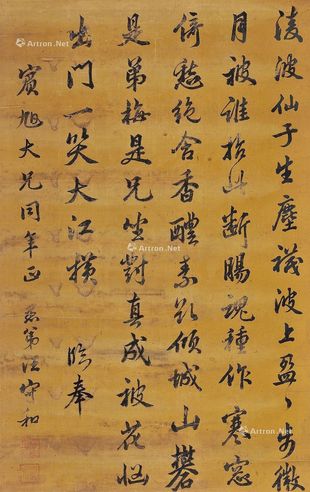 凌波仙子生塵襪波上盈盈步微
月被誰招此斷腸魂種作寒窗
倚愁絕含香醴素欲傾城山礬
是弟梅是兄坐對真成被花惱
出門一笑大江橫 臨奉
賓旭大兄同年正 愚弟汪守和
Artron.Net
Artron.Net
Artron.Net
Artron.Net
Artron.Net
Artron.Net